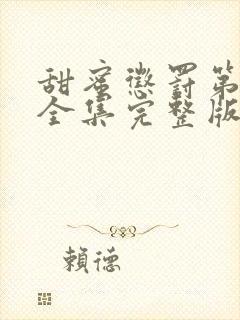 甜蜜懲罰第
全集完整版
賴德